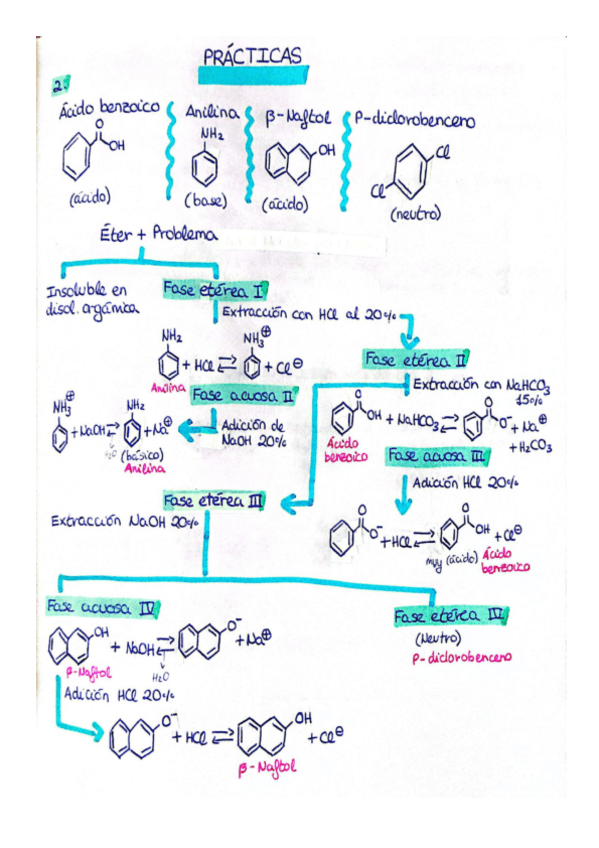 PRÁCTICAS
2.
Ácido benzoico
Anilina
β-Naftol
P-diclorobenceno
O
OH
NH₂
OH
Cl
Cl
(ácido)
(base)
(ácido)
(neutro)
Éter + Problema
Insoluble en
disol. orgámica
Fase etérea I
Extracción con HCl al 20%
NH₂ + HCl ⇌ NH₃⊕ + Cl⊖
Anilina
Fase acuosa II
Adición de
NaOH 20%
NH₃⊕ + NaOH ⇌ NH₂ + Na⊕
H₂O
(básico)
Anilina
Fase etérea II
Extracción con NaHCO₃
15%
O OH + NaHCO₃ ⇌ O O⁻ + Na⊕
+ H₂CO₃
Ácido
benzoico
Fase acuosa III
Adición HCl 20%
O O⁻ + HCl ⇌ O OH + Cl⊖
muy (ácido) Ácido
benzoico
Fase etérea III
Extracción NaOH 20%
Fase acuosa IV
OH + NaOH ⇌ O⁻ + Na⊕
β-Naftol
H₂O
Adición HCl 20%
O⁻ + HCl ⇌ OH + Cl⊖
β-Naftol
Fase etérea IV
(Neutro)
P-diclorobenceno